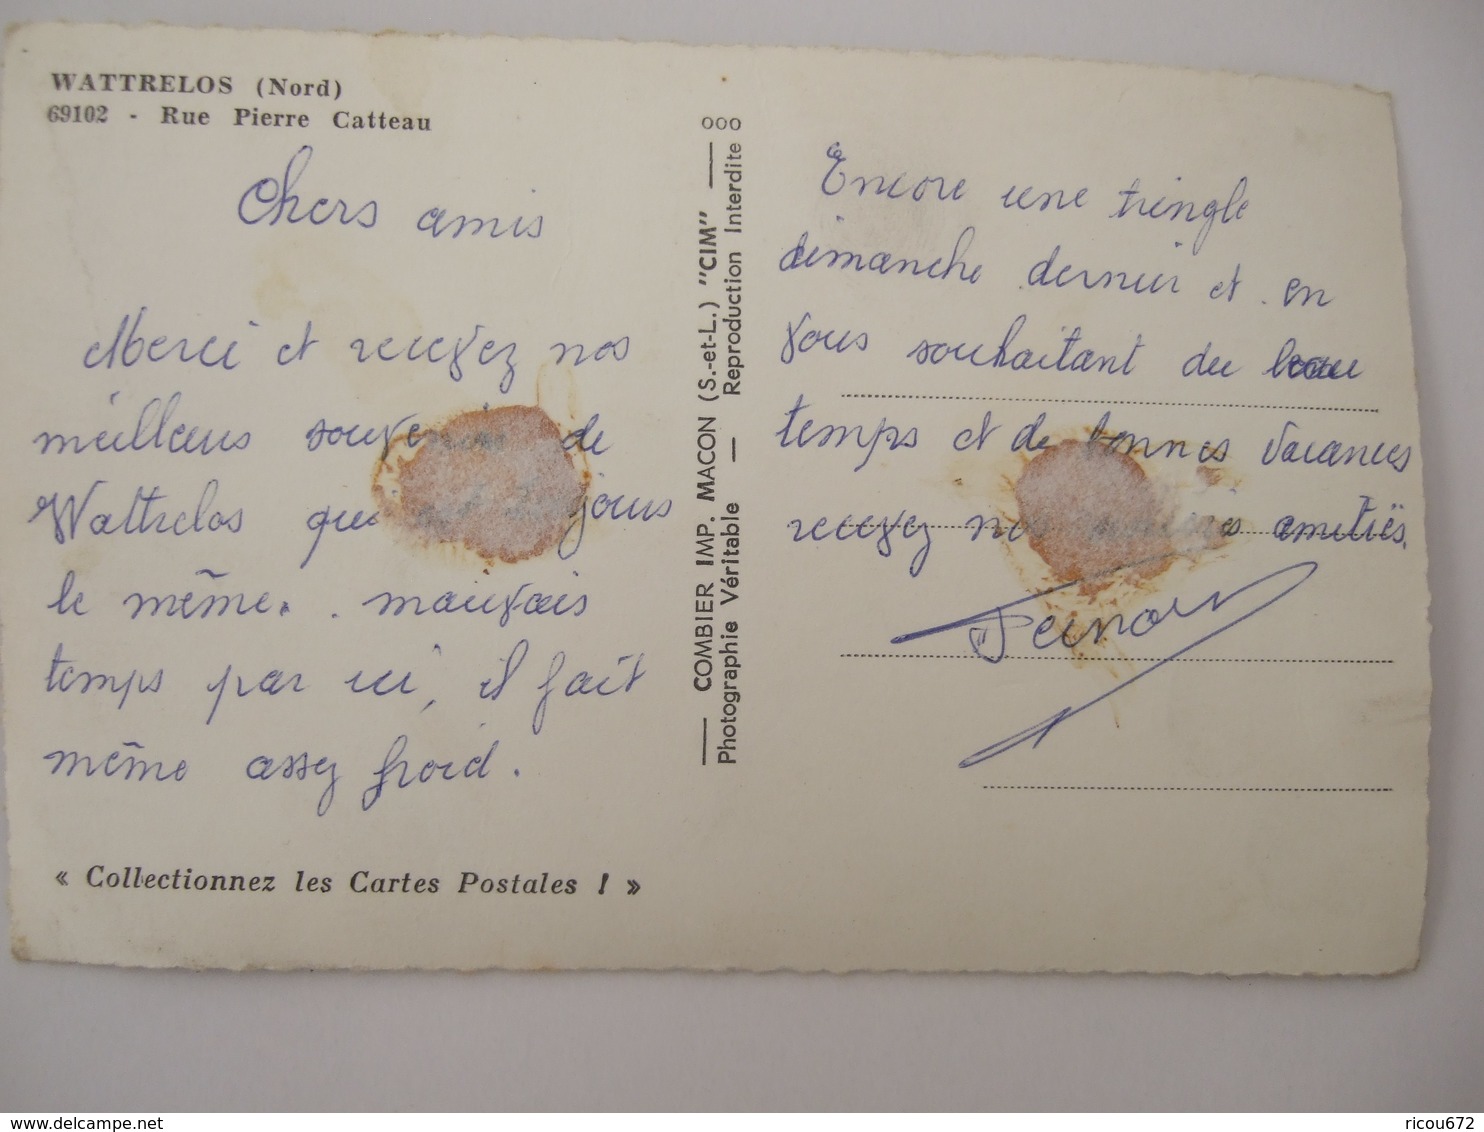 WATTRELOS (Nord)
69102 - Rue Pierre Catteau
Chers amis
Merci et recevez nos
meilleurs souvenirs de
Wattrelos qui est toujours
le même. . mauvais
temps par ici, il fait
même assez froid.
« Collectionnez les Cartes Postales ! »
COMBIER IMP. MACON (S.-et-L.) "CIM"
Photographie Véritable — Reproduction Interdite
ooo
Encore une tringle
dimanche dernier et en
vous souhaitant du beau
temps et de bonnes vacances
recevez nos amitiés.
delcampe.net
ricou672